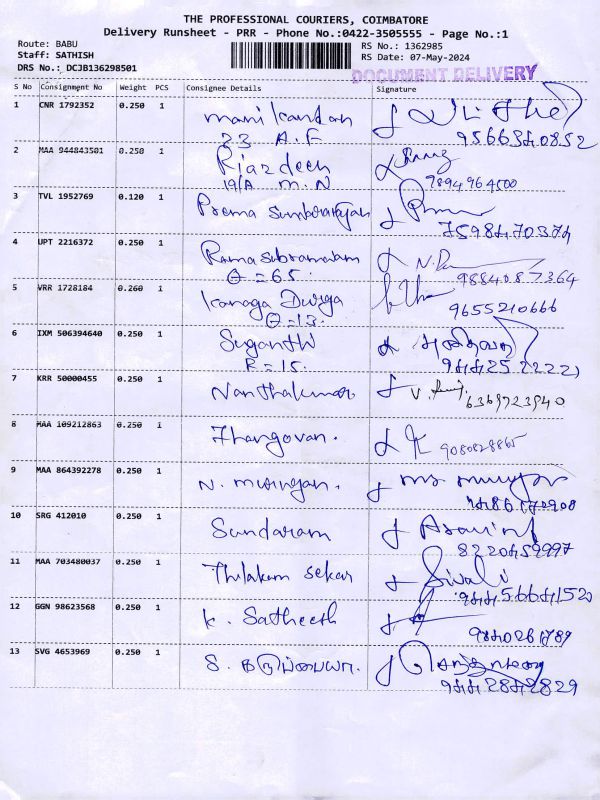 THE PROFESSIONAL COURIERS, COIMBATORE
Delivery Runsheet - PRR - Phone No.:0422-3505555 - Page No.:1
Route: BABU
Staff: SATHISH
DRS No.: DCJB136298501
RS No.: 1362985
RS Date: 07-May-2024
DOCUMENT DELIVERY
S No Consignment No Weight PCS Consignee Details Signature
1 CNR 1792352 0.250 1 Manikandan
23 A.F 9566340852
2 MAA 944843501 0.250 1 Riazdeen
19/A M.N 9894964500
3 TVL 1952769 0.120 1 Prema
7598470374
4 UPT 2216372 0.250 1 Ramasubramaniam
Q = 65. 9884087364
5 VRR 1728184 0.260 1 Kanaga Durga
Q = 13. 9655210666
6 IXM 506394640 0.250 1
R = 15. 9442522221
7 KRR 50000455 0.250 1 Nanthakumar 6369723940
8 MAA 109212863 0.250 1 9080828865
9 MAA 864392278 0.250 1 N. Murugan.
10 SRG 412010 0.250 1 Sundaram
8220459997
11 MAA 703480037 0.250 1 Thilakam Sekar Sivali
9445664152
12 GGN 98623568 0.250 1 K. Satheesh
9840261789
13 SVG 4653969 0.250 1 S. கருப்பையா.
9442842829